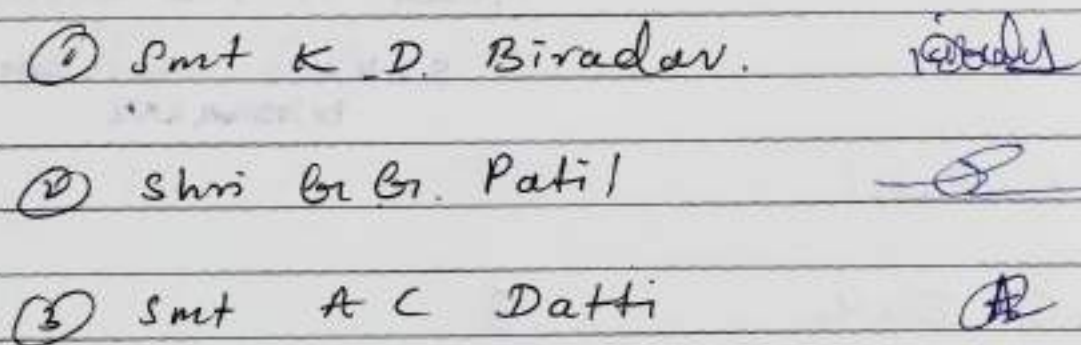 ① Smt K.D. Biradar.
② Shri G. G. Patil
③ Smt A C Datti